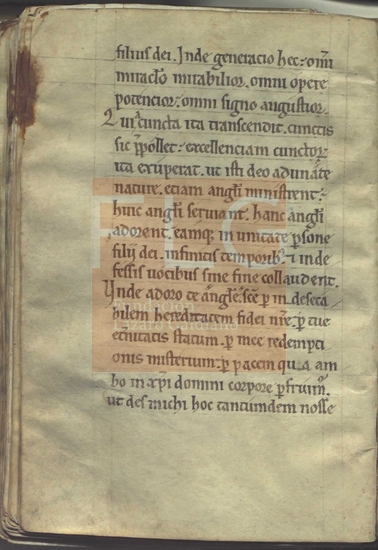 filius dei. Inde generacio hec: omī
miraclo mirabilior. omni opere
potencior: omni signo augustior.
Qui cuncta ita transcendit. cunctis
sic ppollet: excellenciam cunctor
ita exuperat. ut isti deo adunate
nature. etiam angli ministrent:
hunc angli seruiant. hanc angli
adorent. eamq; in unitate psone
filij dei. infinitis temporib; ⁊ inde
fessis uocibus sine fine collaudent.
Inde adoro te angle scē p in deseca
bilem hereditatem fidei nr̄e. p tue
ecnitatis statum. p mee redempti
onis misterium: p pacem qua am
bo in xp̄i domini corpore pfruim.
ut des michi hoc tantumdem nosse
FLG
Fundación
Lázaro Galdiano